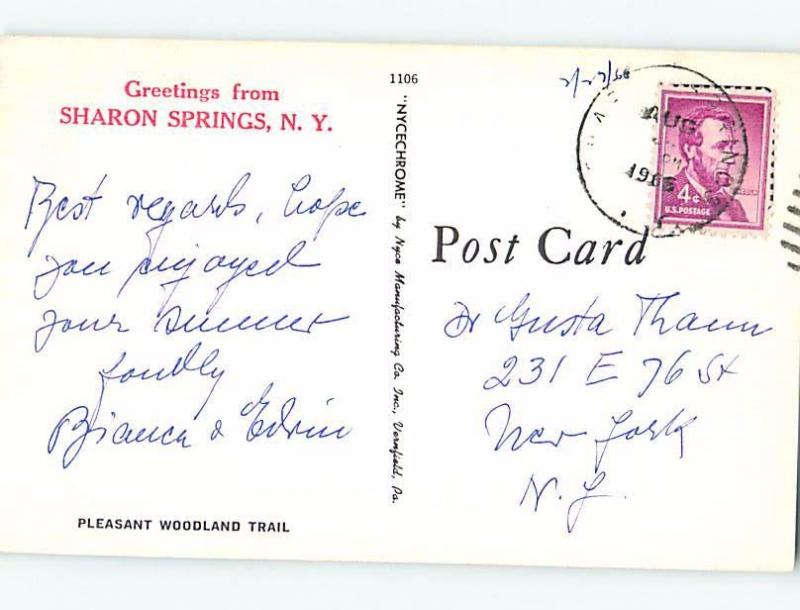 Greetings from
SHARON SPRINGS, N. Y.
Best regards, hope
you enjoyed
your summer
fondly
Bianca & Edwin
PLEASANT WOODLAND TRAIL
1106
"NYCECHROME" by Nyce Manufacturing Co. Inc., Vernfield, Pa.
AUG
4¢
U.S. POSTAGE
Post Card
Dr Gusta Thaun
231 E 76 St
New York
N.Y.